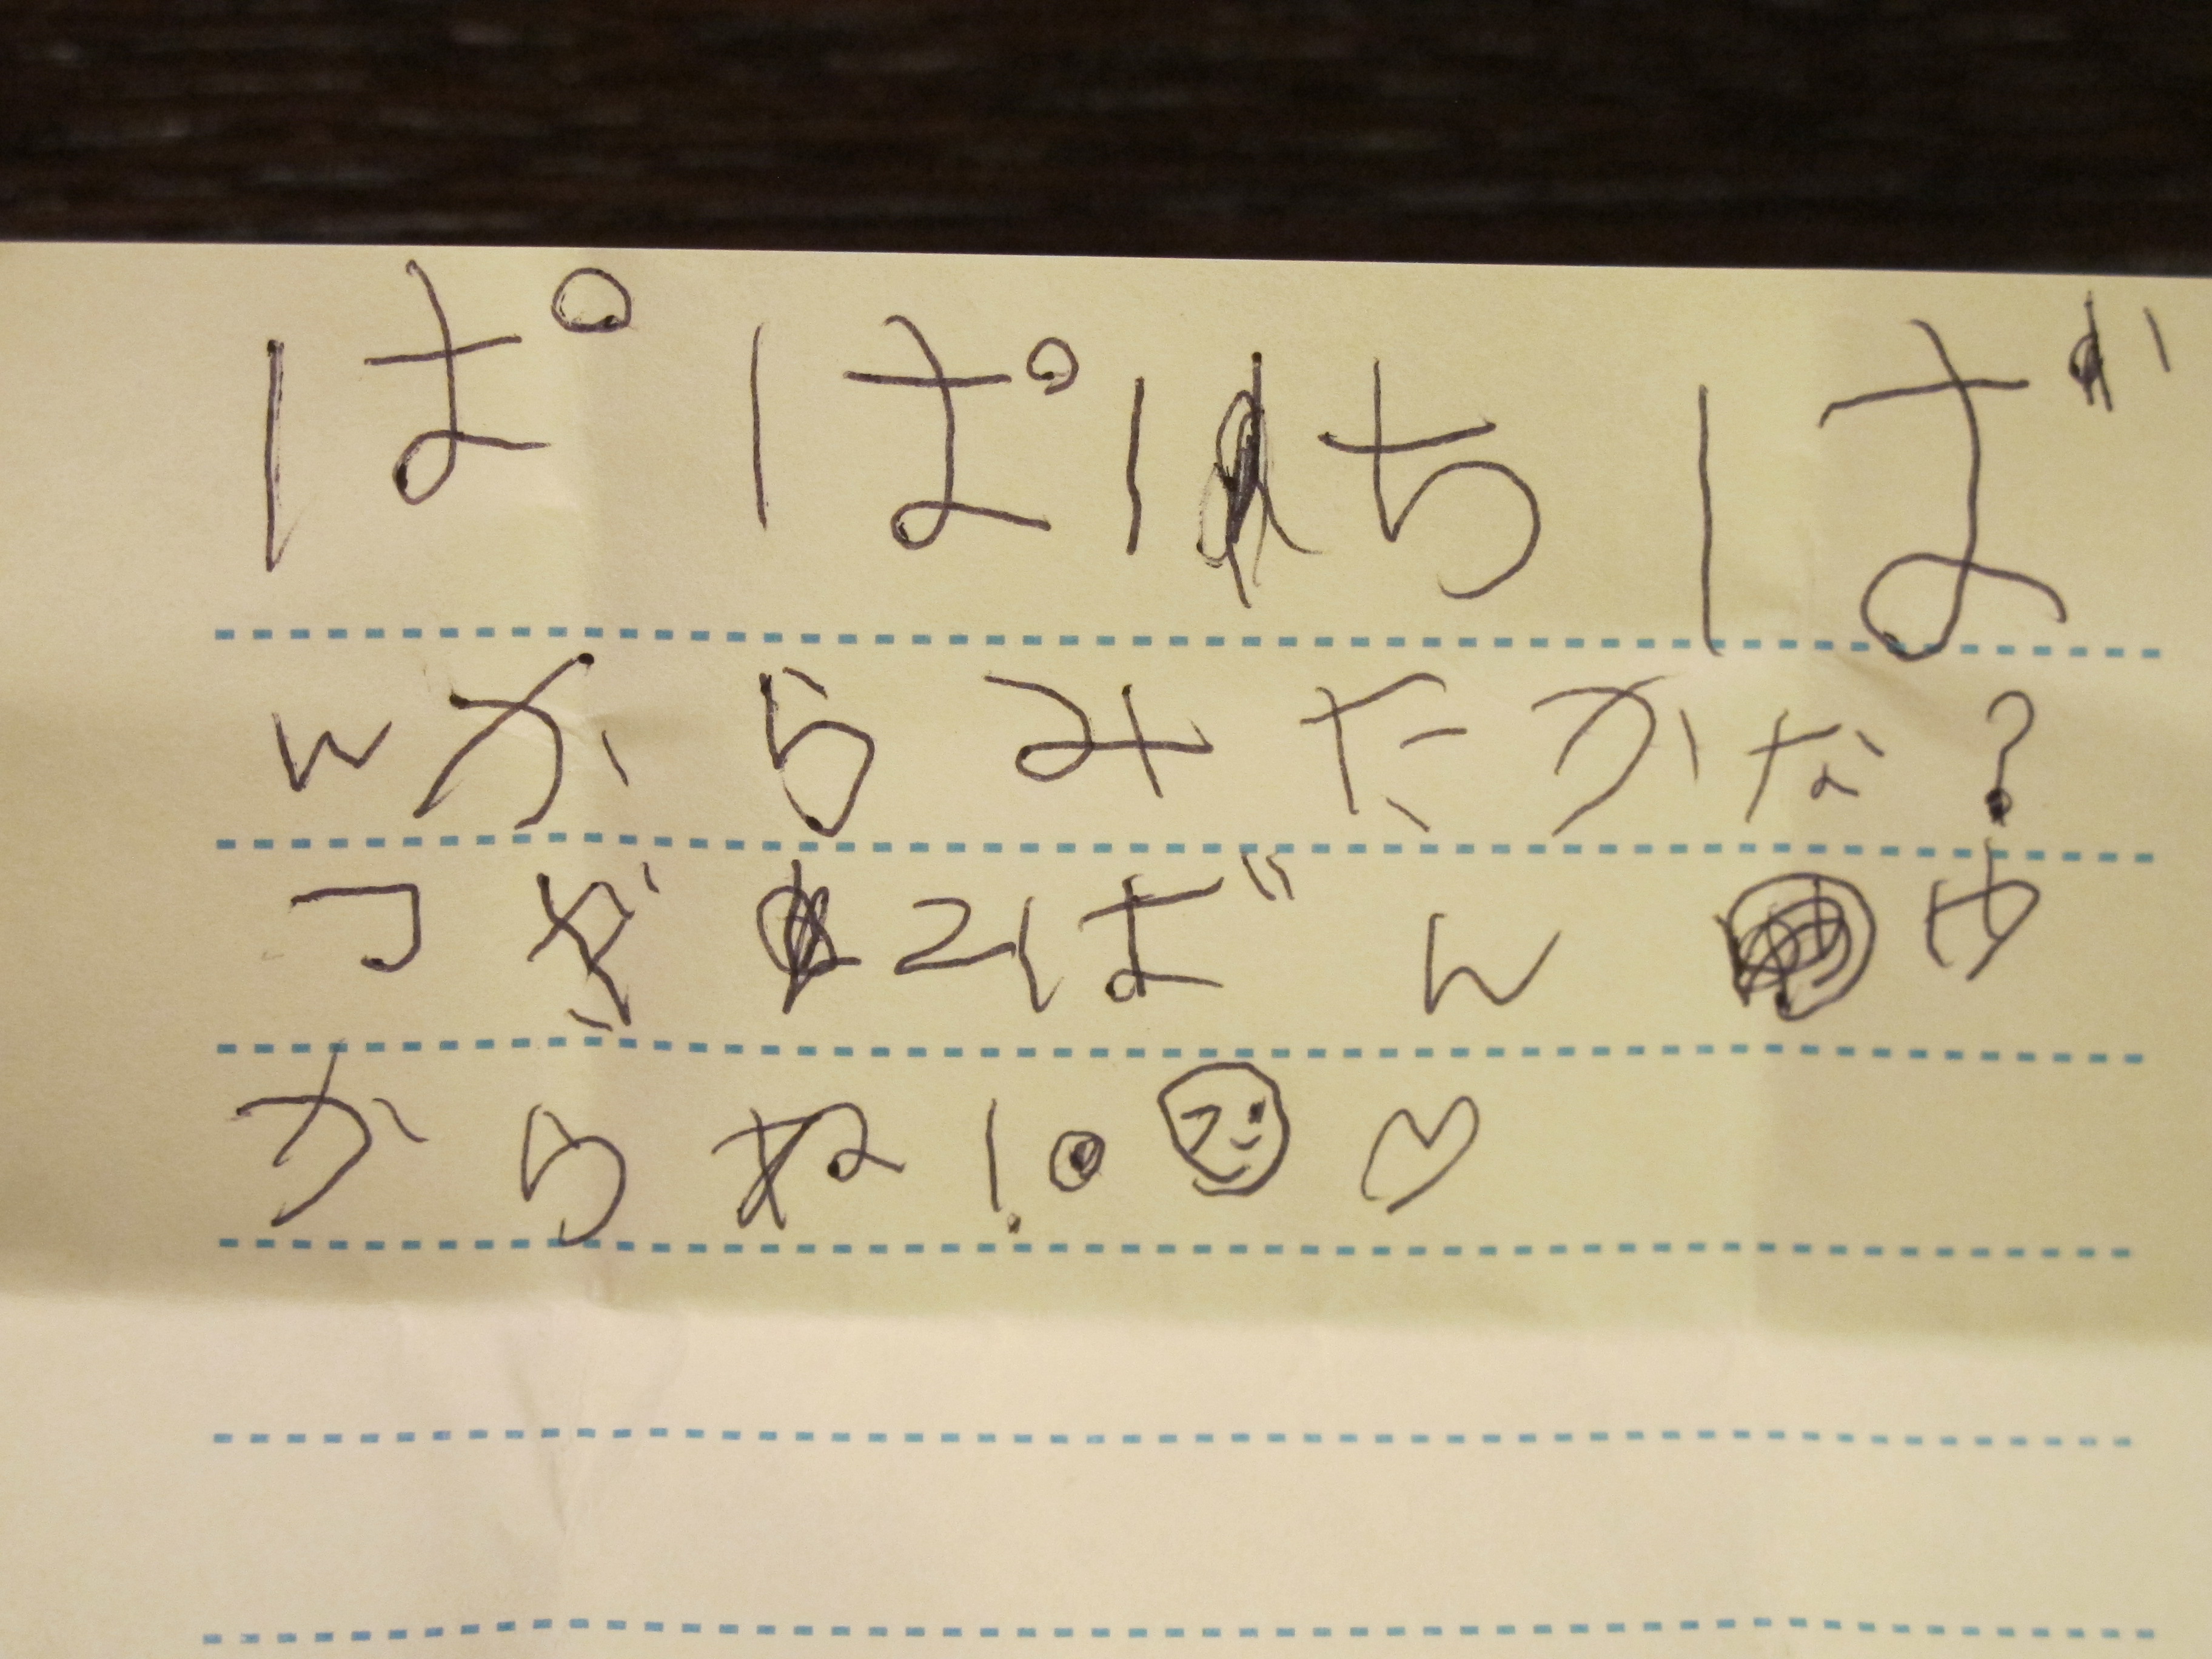 ぱぱいちば
んからみたかな?
つぎにばんめ
からね!